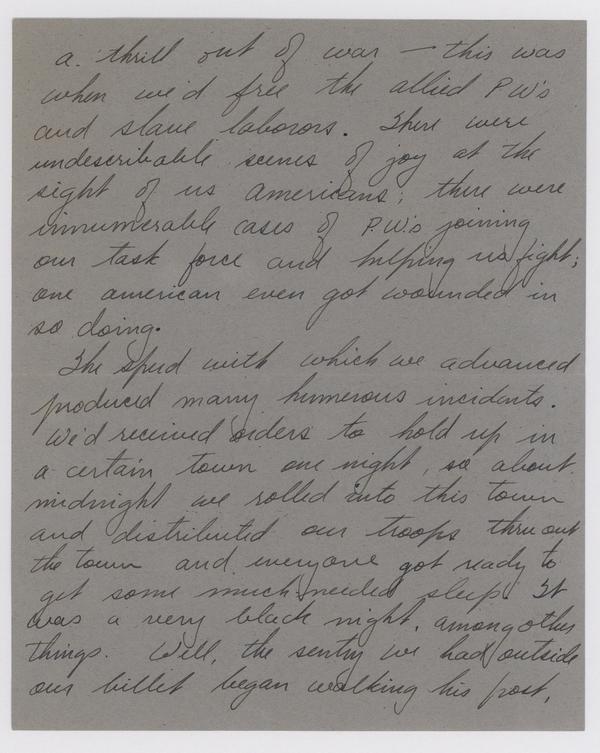 a thrill out of war — this was
when we'd free the allied P W's
and slave laborors. There were
undescribable scenes of joy at the
sight of us americans; there were
innumerable cases of P.W.'s joining
our task force and helping us fight;
one american even got wounded in
so doing.
The speed with which we advanced
produced many humerous incidents.
We'd received orders to hold up in
a certain town one night, so about
midnight we rolled into this town
and distributed our troops thru out
the town and everyone got ready to
get some much needed sleep. It
was a very black night, among other
things. Well, the sentry we had outside
our billet began walking his post,